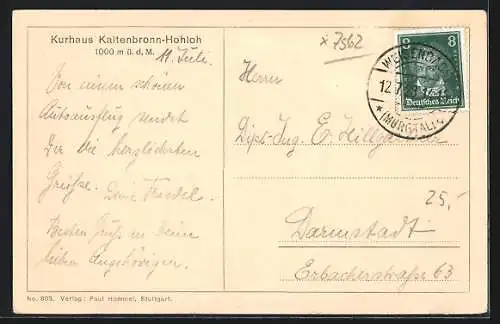 Kurhaus Kaltenbronn-Hohloh
1000 m ü. d. M.
11. Juli.
Von einem schönen
Autoausflug sendet
Dir die herzlichsten
Grüsse. Deine
Besten Gruss an Deine
lieben Angehörigen.
No. 805. Verlag: Paul Hommel, Stuttgart.
* 7562
8 8
Deutsches Reich
12.7
* (MURGTAL)
Herrn
Dipl.-Ing. E.
25,-
Darmstadt
Erbacherstraße 63